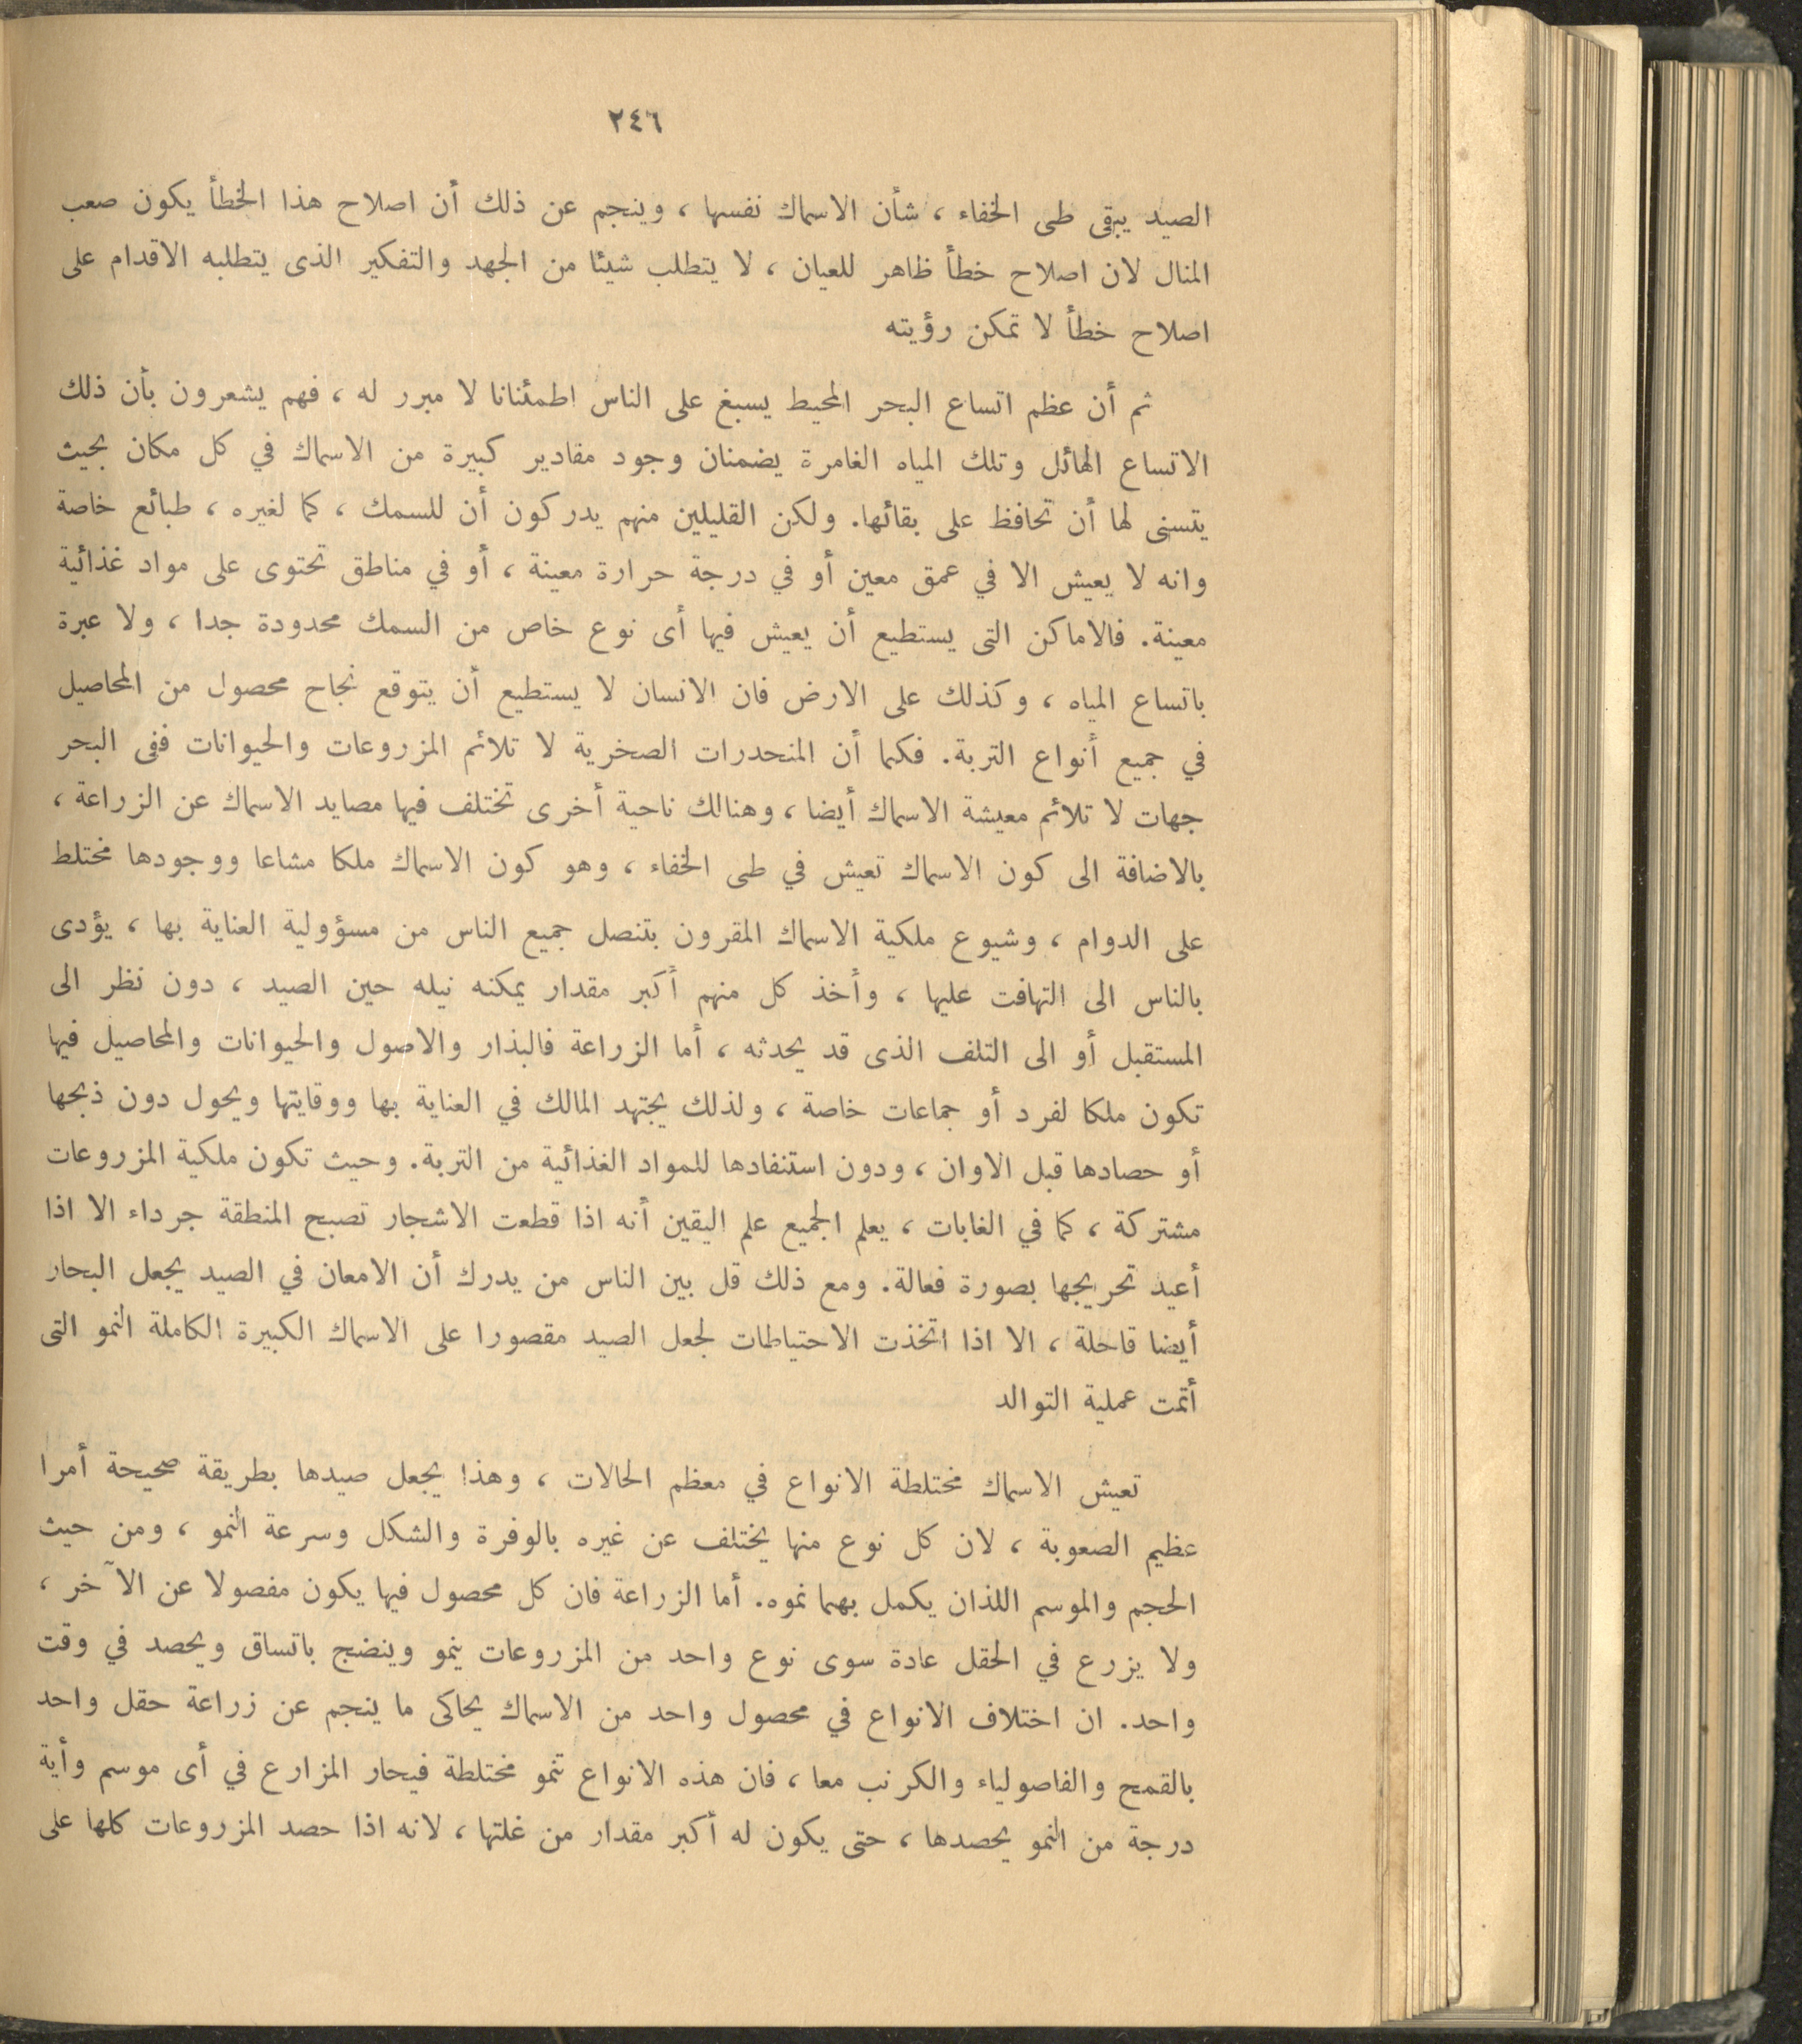 ٢٤٦
الصيد يبقى طى الخفاء ، شأن الاسماك نفسها ، وينجم عن ذلك أن اصلاح هذا الخطأ يكون صعب
المنال لان اصلاح خطأ ظاهر للعيان ، لا يتطلب شيئا من الجهد والتفكير الذى يتطلبه الاقدام على
اصلاح خطأ لا تمكن رؤيته
ثم أن عظم اتساع البحر المحيط يسبغ على الناس اطمئنانا لا مبرر له ، فهم يشعرون بأن ذلك
الاتساع الهائل وتلك المياه الغامرة يضمنان وجود مقادير كبيرة من الاسماك في كل مكان بحيث
يتسنى لها أن تحافظ على بقائها. ولكن القليلين منهم يدركون أن للسمك ، كما لغيره ، طبائع خاصة
وانه لا يعيش الا في عمق معين أو في درجة حرارة معينة ، أو في مناطق تحتوى على مواد غذائية
معينة. فالاماكن التى يستطيع أن يعيش فيها أى نوع خاص من السمك محدودة جدا ، ولا عبرة
باتساع المياه ، وكذلك على الارض فان الانسان لا يستطيع أن يتوقع نجاح محصول من المحاصيل
في جميع أنواع التربة. فكما أن المنحدرات الصخرية لا تلائم المزروعات والحيوانات ففى البحر
جهات لا تلائم معيشة الاسماك أيضا ، وهنالك ناحية أخرى تختلف فيها مصايد الاسماك عن الزراعة ،
بالاضافة الى كون الاسماك تعيش في طى الخفاء ، وهو كون الاسماك ملكا مشاعا ووجودها مختلط
على الدوام ، وشيوع ملكية الاسماك المقرون بتنصل جميع الناس من مسؤولية العناية بها ، يؤدى
بالناس الى التهافت عليها ، وأخذ كل منهم أكبر مقدار يمكنه نيله حين الصيد ، دون نظر الى
المستقبل أو الى التلف الذى قد يحدثه ، أما الزراعة فالبذار والاصول والحيوانات والمحاصيل فيها
تكون ملكا لفرد أو جماعات خاصة ، ولذلك يجتهد المالك في العناية بها ووقايتها ويحول دون ذبحها
أو حصادها قبل الاوان ، ودون استنفادها للمواد الغذائية من التربة. وحيث تكون ملكية المزروعات
مشتركة ، كما في الغابات ، يعلم الجميع علم اليقين أنه اذا قطعت الاشجار تصبح المنطقة جرداء الا اذا
أعيد تحريجها بصورة فعالة. ومع ذلك قل بين الناس من يدرك أن الامعان في الصيد يجعل البحار
أيضا قاحلة ، الا اذا اتخذت الاحتياطات لجعل الصيد مقصورا على الاسماك الكبيرة الكاملة النمو التى
أتمت عملية التوالد
تعيش الاسماك مختلطة الانواع في معظم الحالات ، وهذا يجعل صيدها بطريقة صحيحة أمرا
عظيم الصعوبة ، لان كل نوع منها يختلف عن غيره بالوفرة والشكل وسرعة النمو ، ومن حيث
الحجم والموسم اللذان يكمل بهما نموه. أما الزراعة فان كل محصول فيها يكون مفصولا عن الآخر ،
ولا يزرع في الحقل عادة سوى نوع واحد من المزروعات ينمو وينضج باتساق ويحصد في وقت
واحد. ان اختلاف الانواع في محصول واحد من الاسماك يحاكى ما ينجم عن زراعة حقل واحد
بالقمح والفاصولياء والكرنب معا ، فان هذه الانواع تنمو مختلطة فيحار المزارع في أى موسم وأية
درجة من النمو يحصدها ، حتى يكون له أكبر مقدار من غلتها ، لانه اذا حصد المزروعات كلها على